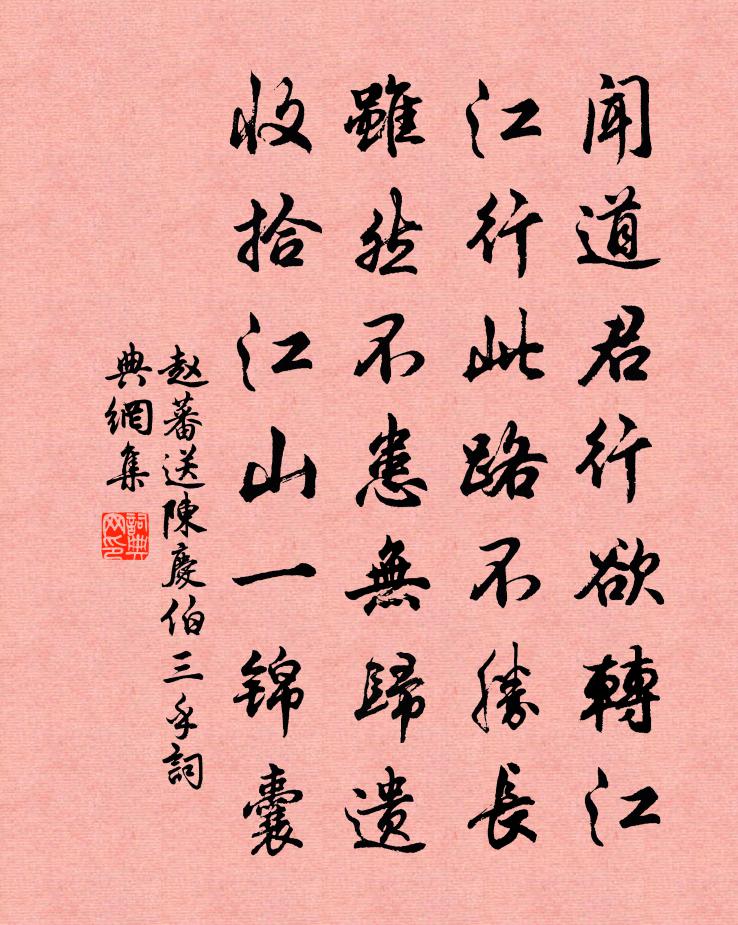 闻道君行欲轉江
江行此路不勝長
雖然不患無歸遗
收拾江山一锦囊
赵蕃送陳慶伯三手詞
典網集
詞典
网印